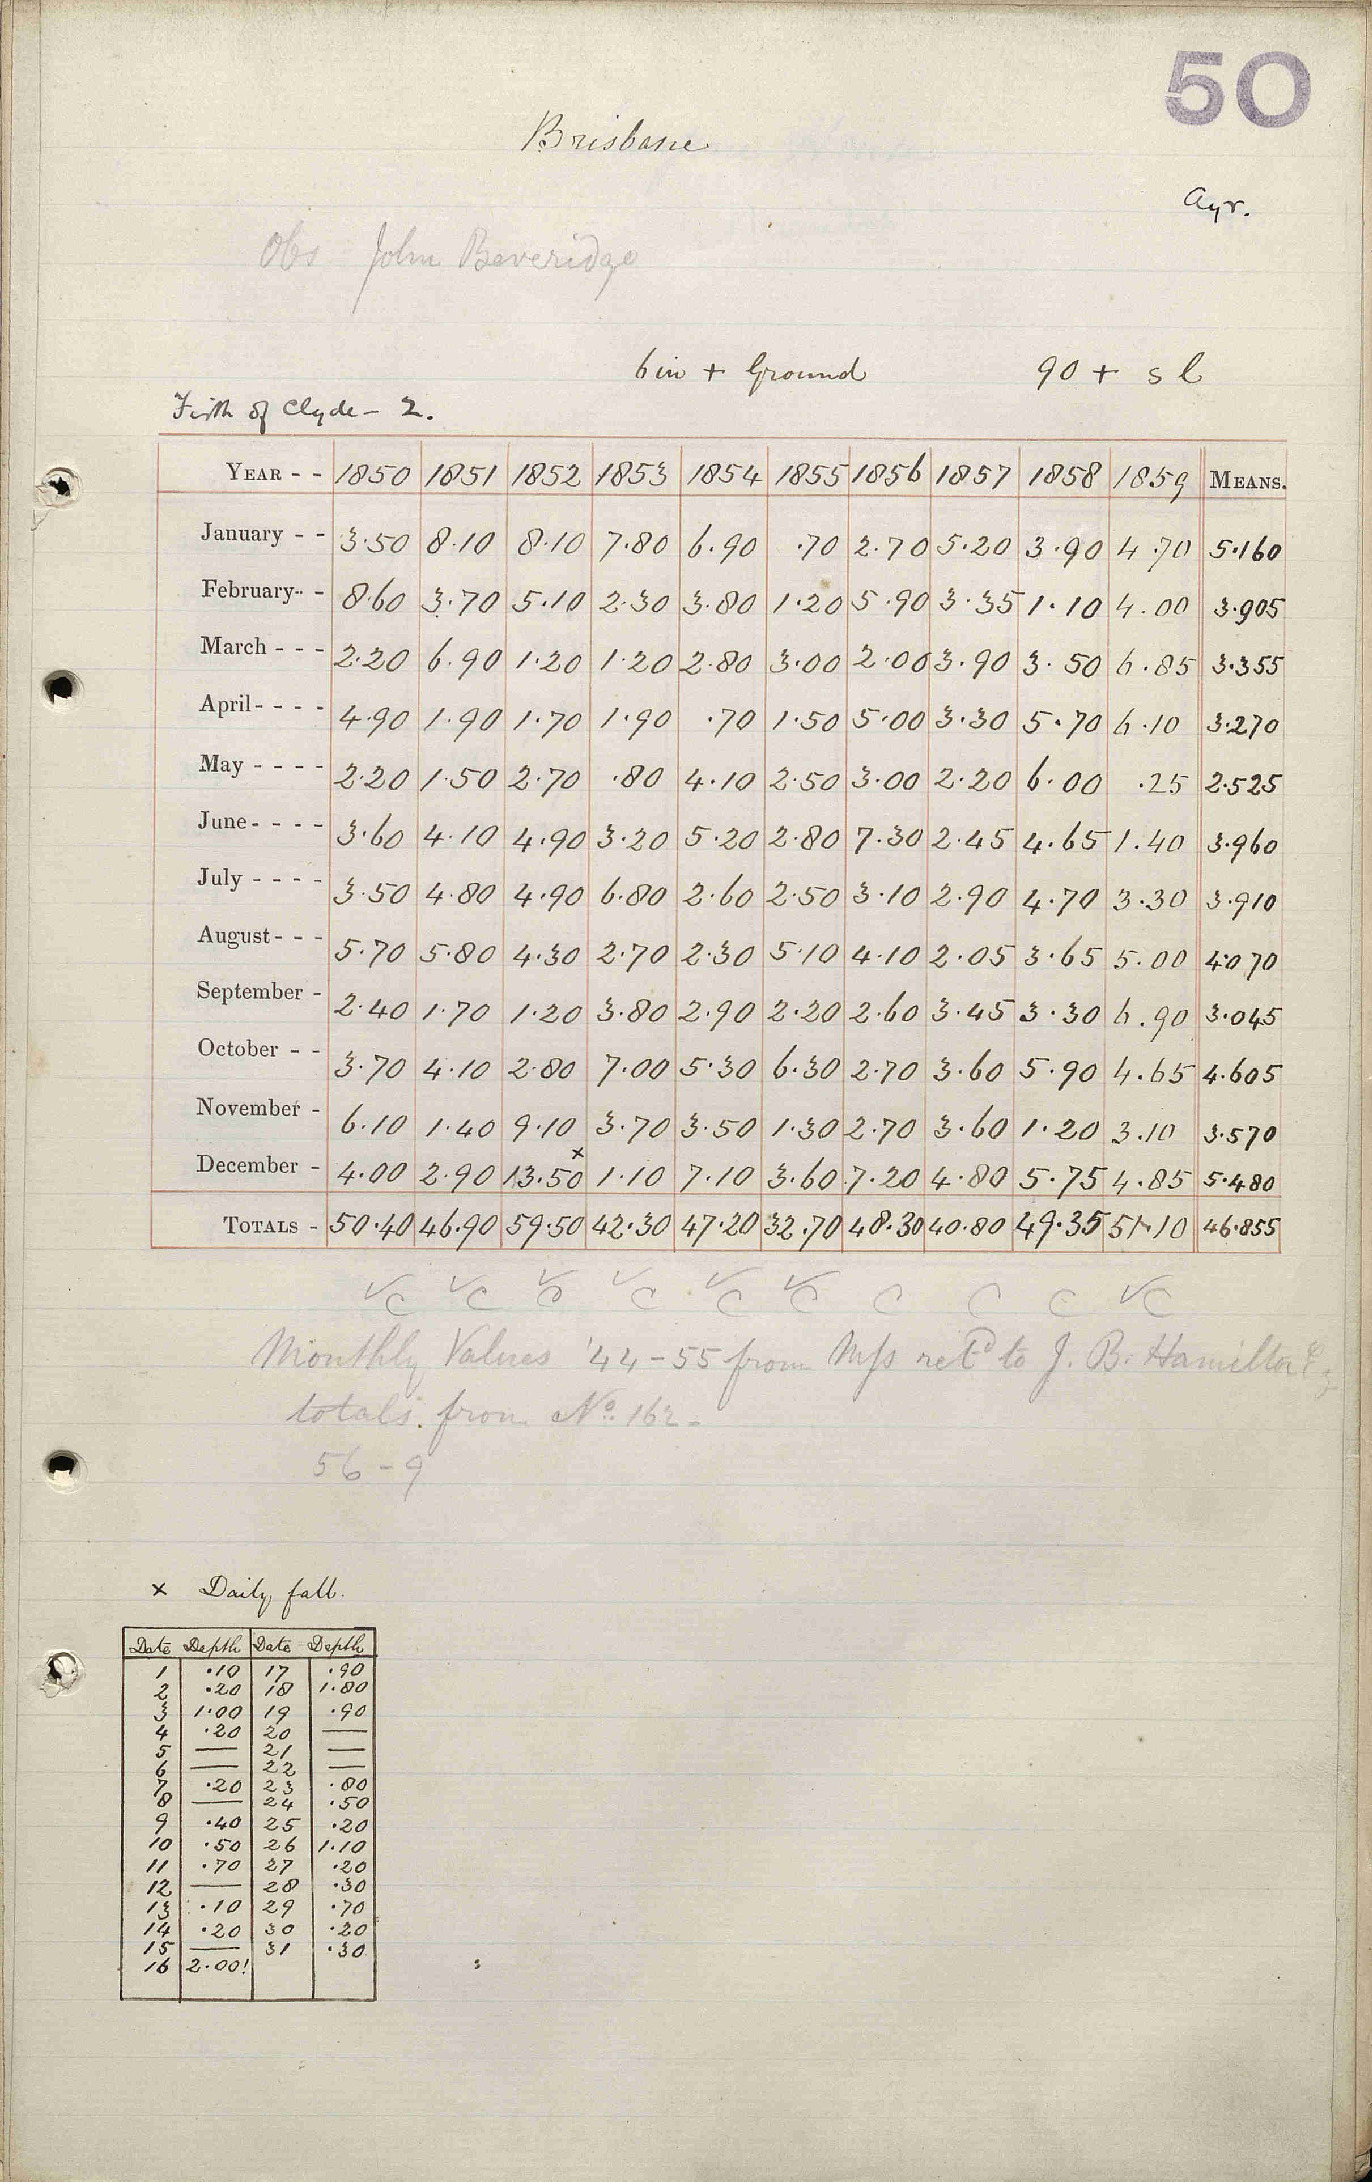 50
Brisbane
Ayr.
Obs John Beveridge
6in + Ground 90 + s l
Firth of Clyde - 2.
YEAR - - 1850 1851 1852 1853 1854 1855 1856 1857 1858 1859 MEANS.
January - - 3.50 8.10 8.10 7.80 6.90 .70 2.70 5.20 3.90 4.70 5.160
February - - 8.60 3.70 5.10 2.30 3.80 1.20 5.90 3.35 1.10 4.00 3.905
March - - - 2.20 6.90 1.20 1.20 2.80 3.00 2.00 3.90 3.50 6.85 3.355
April - - - - 4.90 1.90 1.70 1.90 .70 1.50 5.00 3.30 5.70 6.10 3.270
May - - - - 2.20 1.50 2.70 .80 4.10 2.50 3.00 2.20 6.00 .25 2.525
June - - - - 3.60 4.10 4.90 3.20 5.20 2.80 7.30 2.45 4.65 1.40 3.960
July - - - - 3.50 4.80 4.90 6.80 2.60 2.50 3.10 2.90 4.70 3.30 3.910
August - - - 5.70 5.80 4.30 2.70 2.30 5.10 4.10 2.05 3.65 5.00 4.070
September - 2.40 1.70 1.20 3.80 2.90 2.20 2.60 3.45 3.30 6.90 3.045
October - - 3.70 4.10 2.80 7.00 5.30 6.30 2.70 3.60 5.90 4.65 4.605
November - 6.10 1.40 9.10 3.70 3.50 1.30 2.70 3.60 1.20 3.10 3.570
December - 4.00 2.90 13.50 x 1.10 7.10 3.60 7.20 4.80 5.75 4.85 5.480
TOTALS - 50.40 46.90 59.50 42.30 47.20 32.70 48.30 40.80 49.35 51.10 46.855
✓C ✓C ✓C ✓C ✓C ✓C C C C ✓C
Monthly Values '44 - 55 from Mss retd to J. B. Hamilton &
totals from No. 162 -
56 - 9
x Daily fall.
Date Depth Date Depth
1 .10 17 .90
2 .20 18 1.80
3 1.00 19 .90
4 .20 20 —
5 — 21 —
6 — 22 —
7 .20 23 .80
8 — 24 .50
9 .40 25 .20
10 .50 26 1.10
11 .70 27 .20
12 — 28 .30
13 .10 29 .70
14 .20 30 .20
15 — 31 .30
16 2.00!